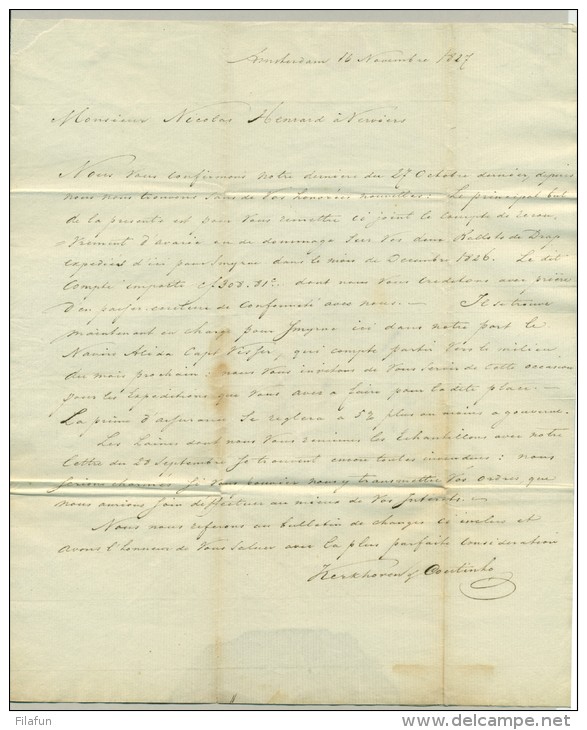 Amsterdam 16 Novembre 1827
Monsieur Nicolas Henrard à Verviers
Nous vous confirmons notre dernière du 27 Octobre dernier, depuis
nous nous trouvons sans de Vos honorées nouvelles: Le principal but
de la présente est pour Vous remettre ci joint le compte de recou
vrement d'avarie ou de dommage sur Vos deux Ballots de Drap
expediés d'ici pour Smyrne dans le mois de Decembre 1826. Le dit
Compte importe f 308.31 dont nous Vous creditons avec prière
d'en passer ecriture de Conformité avec nous. — Il se trouve
maintenant en charge pour Smyrne ici dans notre port le
Navire Alida Capt Visser, qui compte partir Vers le milieu
du mois prochain: nous Vous invitons de Vous servir de cette occasion
pour les Expeditions que Vous avez a faire pour la dite place. —
La prime d'assurance se reglera a 5% plus ou moins a gouverne.
Les Laines dont nous Vous remimes les Echantillons avec notre
lettre du 29 Septembre se trouvent encore toutes invendues: nous
serions charmés si Vous pouviez nous y transmettre Vos ordres que
nous aurions soin d'effectuer au mieux de Vos Interets. —
Nous nous referons au bulletin de changes ci inclus et
avons l'honneur de Vous Saluer avec la plus parfaite consideration
Kerkhoven & Coutinho
Filafun
www.delcampe.net